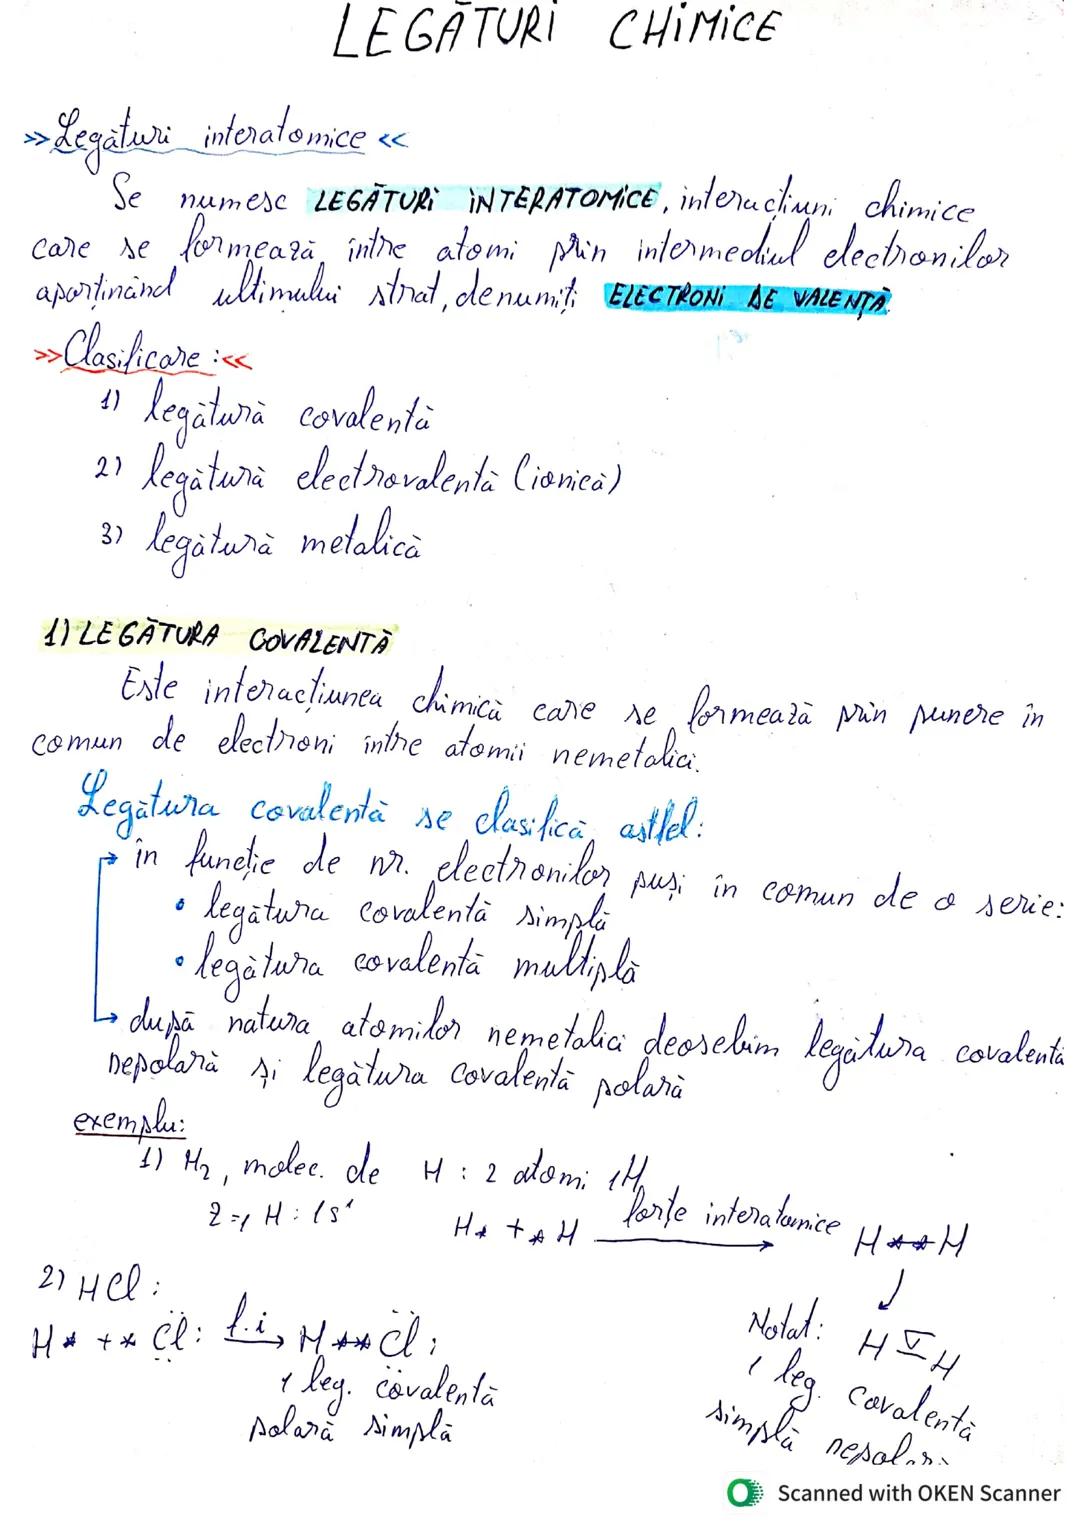 LEGĂTURI CHIMICE
>> Legături interatomice <<
Se numesc LEGĂTURI INTERATOMICE, interacțiuni chimice
care se formează, între atomi prin intermediul electronilor
aparținând ultimului strat, denumiți ELECTRONI DE VALENȚĂ.
>> Clasificare: <<
1) legătură covalentă
2) legătură electrovalentă (ionică)
3) legătură metalică
1) LEGĂTURA COVALENTĂ
Este interacțiunea chimică care se formează prin punere în
comun de electroni între atomii nemetalici.
Legătura covalentă se clasifică astfel:
→ în funcție de nr. electronilor puși în comun de o serie:
• legătura covalentă simplă
• legătura covalentă multiplă
→ după natura atomilor nemetalici deosebim legătura covalentă
nepolară și legătura covalentă polară
exemplu:
1) H₂, molec. de H : 2 atomi ₁H
Z=1 H: 1s¹
H* + *H forțe interatomice → H**H
2) HCl:
H* + *Cl: f.i → H**Cl:
1 leg. covalentă
polară simplă
Notat: H – H
1 leg. covalentă
simplă nepolară
Scanned with OKEN Scanner